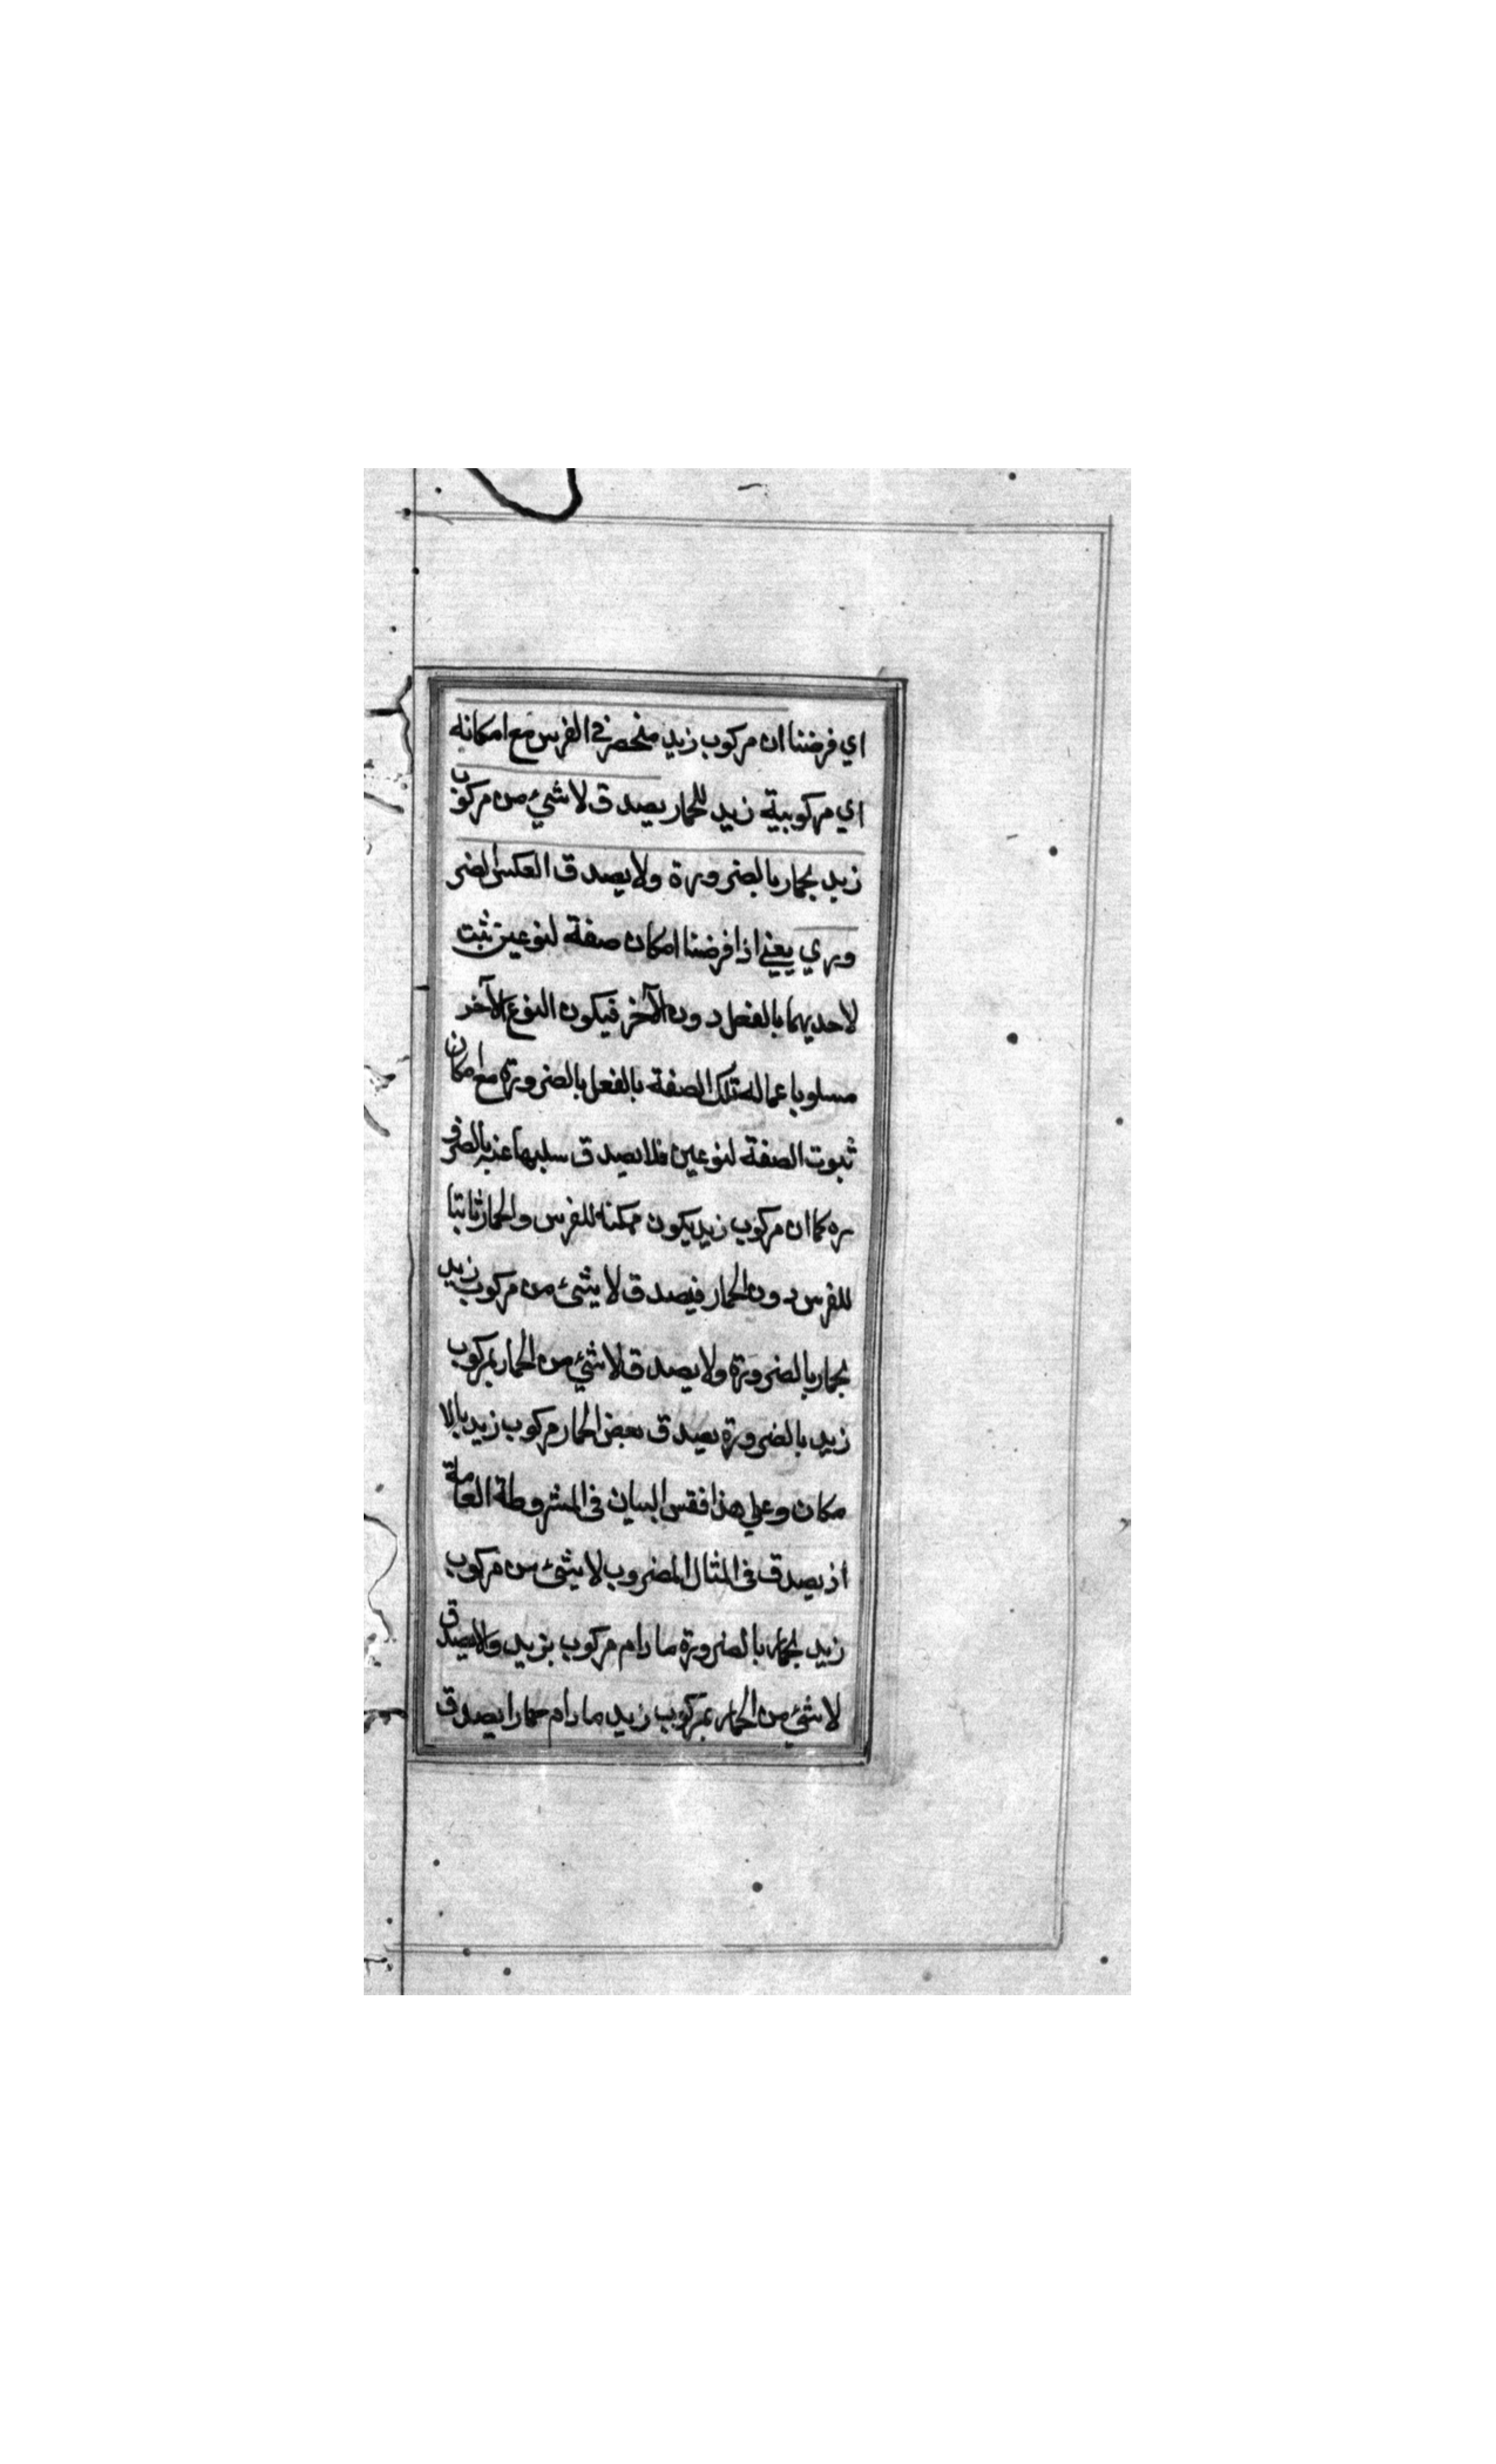 اي فرضنا ان مركوب زيد منحصر في الفرس مع امكانه
اي مركوبية زيد للحمار يصدق لا شيئ من مركوب
زيد بحمار بالضرورة ولا يصدق العكس الضر
وري يعني اذا فرضنا امكان صفة لنوعين ثبت
لاحديهما بالفعل دون الآخر فيكون النوع الآخر
مسلوبا عما له تلك الصفة بالفعل بالضرورة مع امكان
ثبوت الصفة لنوعين فلا يصدق سلبها عنه بالضرو
ره كما ان مركوب زيد يكون ممكنه للفرس والحمار ثابتا
للفرس دون الحمار فيصدق لا شئ من مركوب زيد
بحمار بالضرورة ولا يصدق لا شئ من الحمار بمركوب
زيد بالضرورة يصدق بعض الحمار مركوب زيد بالا
مكان وعلي هذا فقس البيان في المشروطة العامة
اذ يصدق في المثال المضروب لا شئ من مركوب
زيد بحمار بالضرورة ما دام مركوب بزيد ولا يصدق
لا شئ من الحمار بمركوب زيد ما دام حمارا يصدق